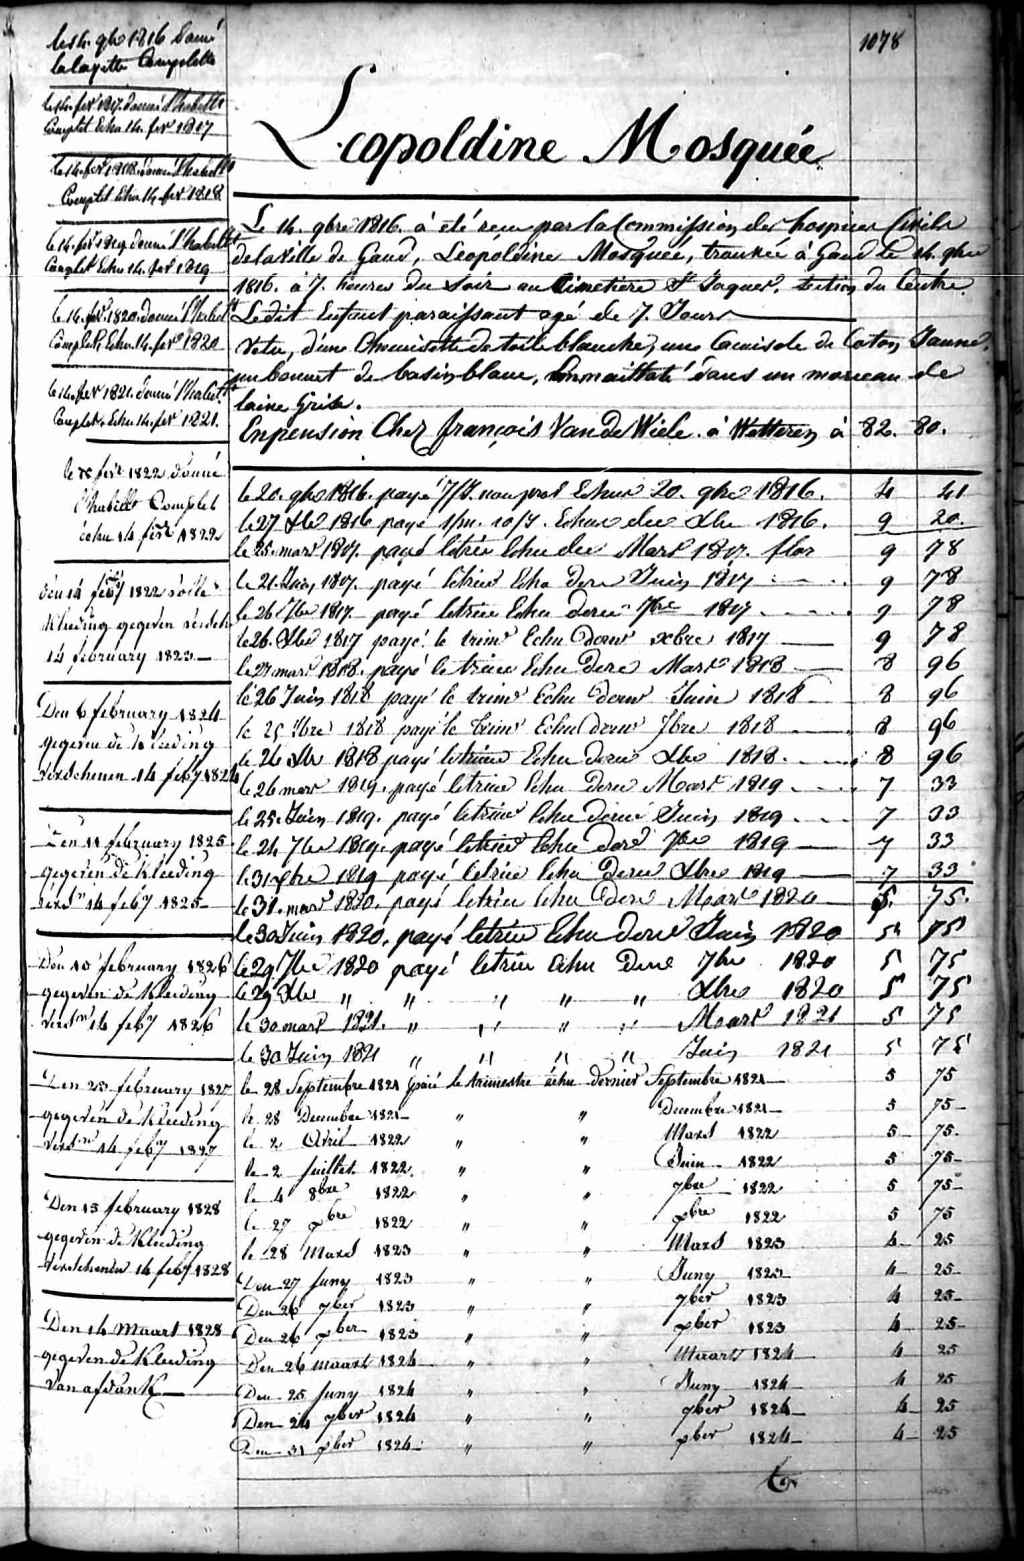 1078
Leopoldine Mosquée
Le 14. gbre 1816. à été reçu par la Commission des hospices Civils
de la Ville de Gand, Léopoldine Mosquée, trouvée à Gand Le 14. gbre
1816. à 7. heures du Soir au Cimetiere St Jaques, section du Centre.
Ledit Enfant paraissant agé de 7. Jours
Vetu, d'une Chemisette de toile blanche, une Camisole de Coton Jaune,
un bonnet de basin blanc, Emmaillotté dans un morceau de
laine Grise.
En pension Chez françois Van de Wiele. à Wetteren à 82. 80.
le 14. gbre 1816 Donné
la layette Complette
le 14. fer 1817. donné l'habillt
Complet Echu 14. fer 1817
le 14. fer 1818. donné l'habillt
Complet Echu 14. fer 1818
le 14. fer 1819 donné l'habillt
Complet Echu 14. fer 1819
le 14. fer 1820. donné l'habillt
Complet, Echu 14. fer 1820
le 14. fer 1821. donné l'habillt
Complet. Echu 14. fer 1821.
le fer 1822 donné
l'habillt Complet
échu 14 fer 1822
den 14 feb 1822
Kleeding gegeven
14 february 1823
Den 6 february 1824
gegeven de kleeding
verschenen 14 feby 1824
Den 11 february 1825
gegeven de Kleeding
14 feby 1825
Den 10 february 1826
gegeven de Kleeding
14 feby 1826
Den 23 february 1827
gegeven de Kleeding
14 feby 1827
Den 15 february 1828
gegeven de Kleeding
Verschenen 14 feby 1828
Den 14 Maart 1828
gegeven de Kleeding
Van afdank
le 20. gbre 1816. payé Echus 20. gbre 1816. 4 41
le 27 Xbre 1816 payé 1/m. 10/7. Echus du Xbre 1816. 9 20.
le 25. mars 1817. payé le trim Echu du Mars 1817. flor 9 78
le 21. Juin 1817. payé le trim Echu dern Juin 1817 9 78
le 26 7bre 1817. payé le trim Echu dern 7bre 1817 9 78
le 26. Xbre 1817 payé le trim Echu dern xbre 1817 9 78
le 27. mars 1818. payé le trim Echu dern Mars 1818 8 96
le 26 Juin 1818 payé le trim Echu dern Juin 1818 8 96
le 25 7bre 1818 payé le trim Echu dern 7bre 1818 8 96
le 24 Xbre 1818 payé le trim Echu dern Xbre 1818. 8 96
le 26 mars 1819. payé le trim Echu dern Mars 1819 7 33
le 25. Juin 1819. payé le trim Echu dern Juin 1819 7 33
le 24 7bre 1819. payé le trim Echu dern 7bre 1819 7 33
le 31 Xbre 1819 payé le trim Echu dern Xbre 1819 7 33
le 31. mars 1820. payé le trim Echu dern Mars 1820 5. 75.
le 30 Juin 1820. payé le trim Echu dern Juin 1820 5 75
le 29 7bre 1820 payé le trim échu dern 7bre 1820 5 75
le 29 Xbre " " " " " Xbre 1820 5 75
le 30 mars 1821. " " " " Mars 1821 5 75
le 30 Juin 1821 " " " " Juin 1821 5 75
le 28 Septembre 1821 payé le trimestre échu dernier Septembre 1821 5 75
le 28 Decembre 1821 " " Decembre 1821 5 75
le 2 Avril 1822 " " Mars 1822 5 75.
le 2 Juillet 1822 " " Juin 1822 5 75
le 4 8bre 1822 " " 7bre 1822 5 75
le 27 xbre 1822 " " xbre 1822 5 75
le 28 Mars 1823 " " Mars 1823 4 25
Den 27 Juny 1823 " " Juny 1823 4 25
Den 26 7ber 1823 " " 7ber 1823 4 25
Den 26 xber 1823 " " xber 1823 4 25
Den 26 maart 1824 " " Maart 1824 4 25
Den 25 Juny 1824 " " Juny 1824 4 25
Den 24 7ber 1824 " " 7ber 1824 4 25
Den 31 xber 1824 " " xber 1824 4 25